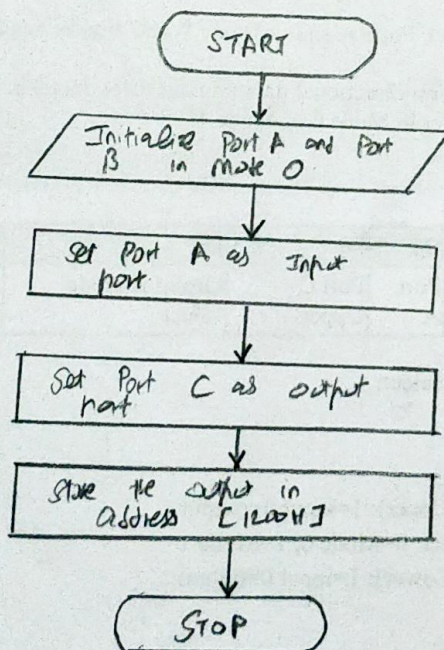 START
Initialize Port A and Port
B in mode 0
Set Port A as Input
port.
Set Port C as output
port
Store the output in
Address [1200H]
STOP